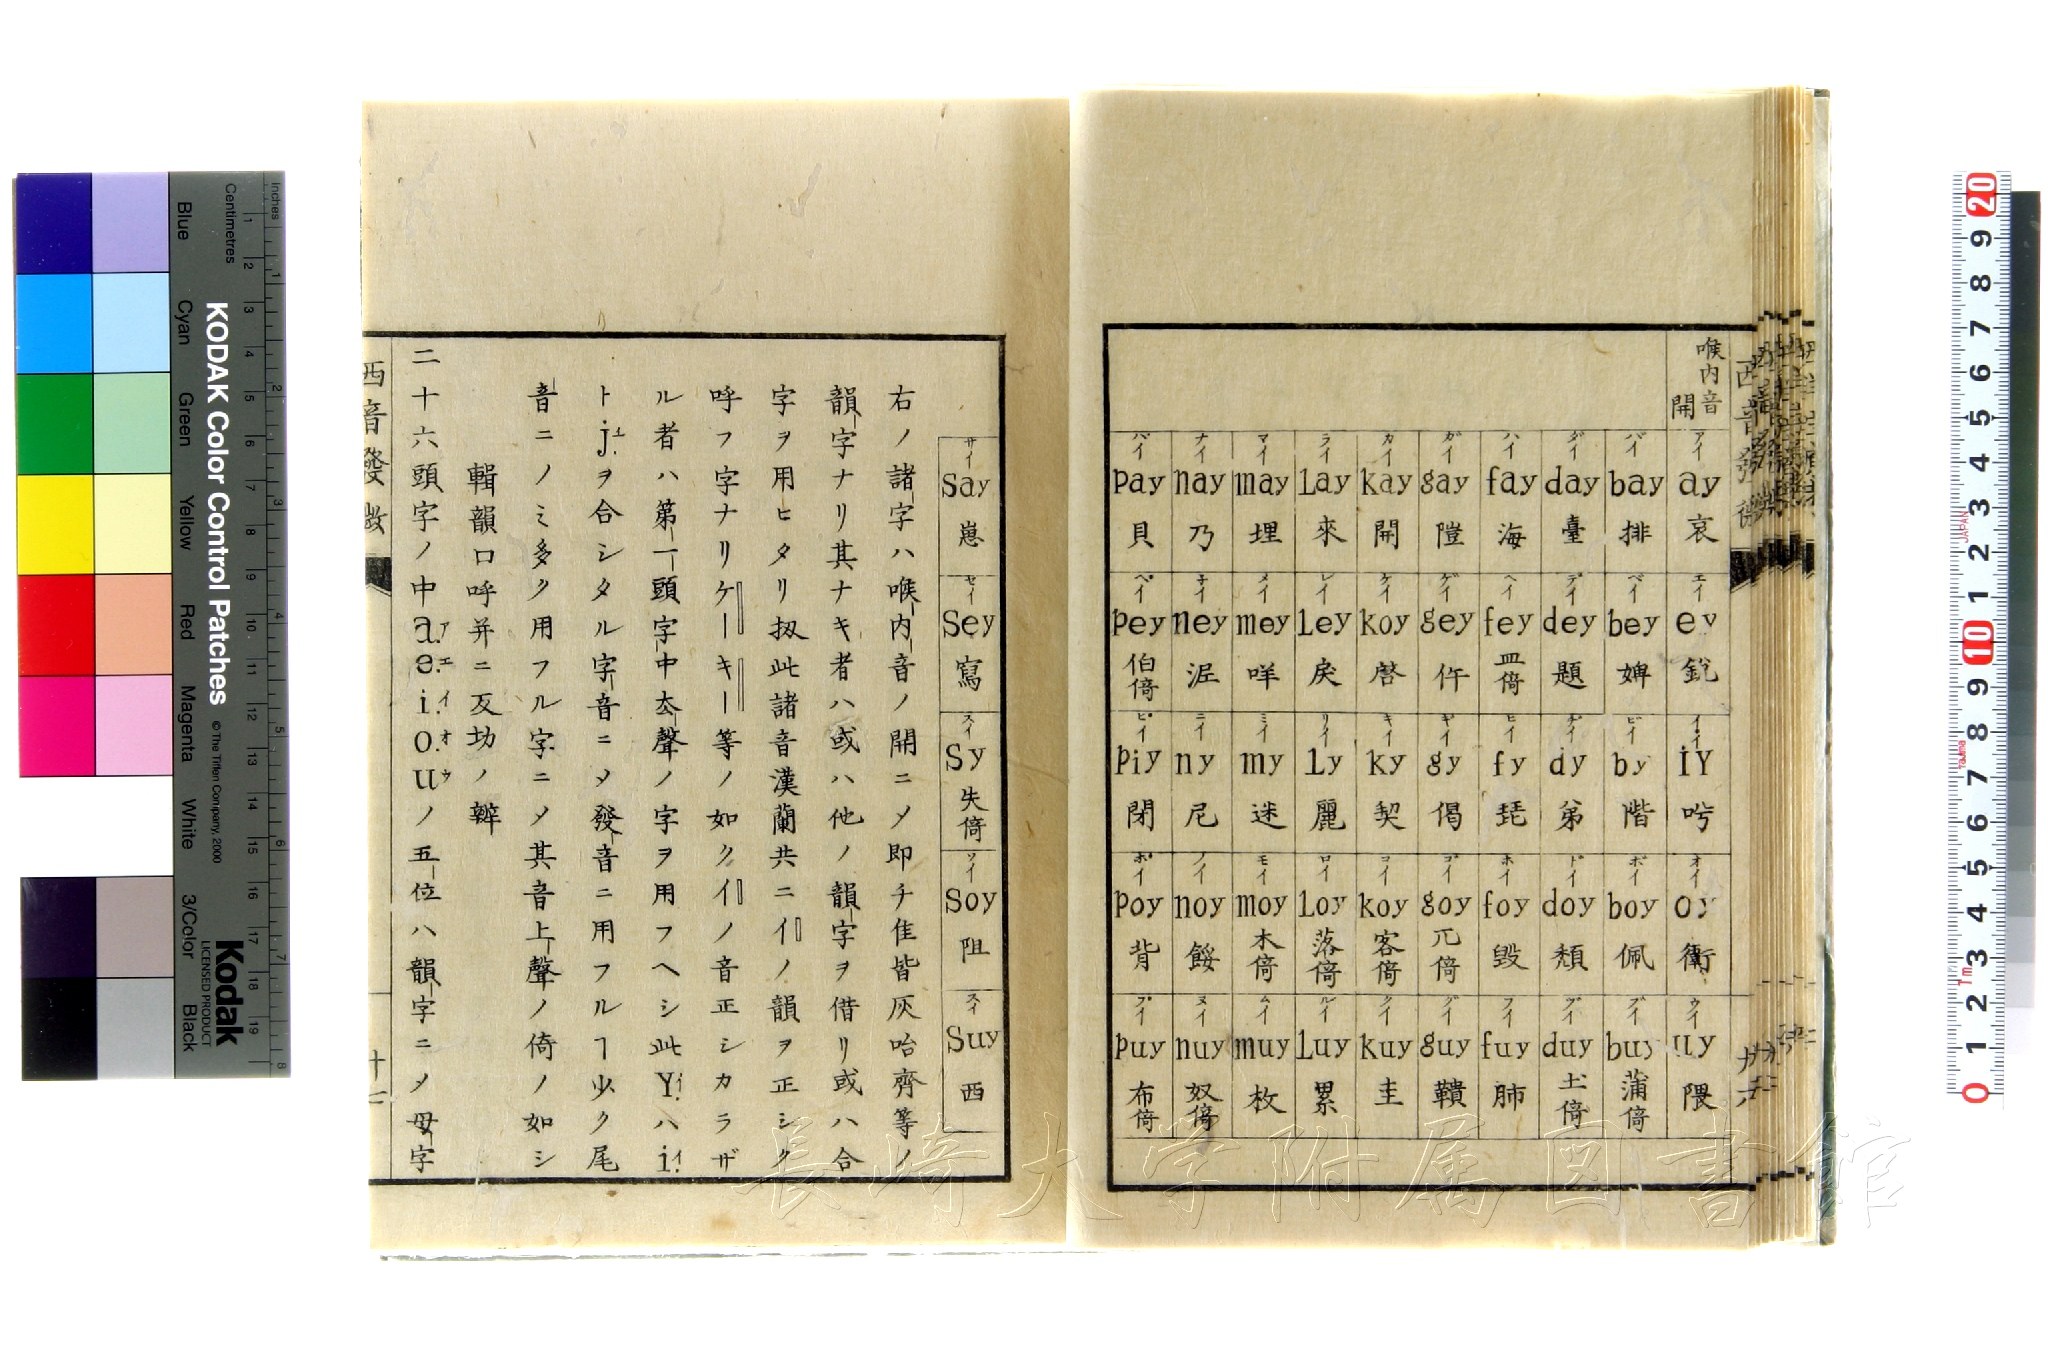 喉内音
開
アイ ay 哀
エイ ey 銳
イイ iy 吟
オイ oy 衢
ウイ uy 隈
バイ bay 排
ベイ bey 婢
ビイ by 階
ボイ boy 佩
ブイ buy 蒲倚
ダイ day 臺
デイ dey 題
ヂイ dy 弟
ドイ doy 頽
ヅイ duy 土倚
ハイ fay 海
ヘイ fey 皿倚
ヒイ fy 琵
ホイ foy 毀
フイ fuy 肺
ガイ gay 隑
ゲイ gey 仵
ギイ gy 偈
ゴイ goy 兀倚
グイ guy 鞼
カイ kay 開
ケイ koy 啓
キイ ky 契
コイ koy 客倚
クイ kuy 圭
ライ lay 來
レイ ley 戾
リイ ly 麗
ロイ loy 落倚
ルイ luy 累
マイ may 埋
メイ mey 咩
ミイ my 迷
モイ moy 木倚
ムイ muy 枚
ナイ nay 乃
子イ ney 泥
ニイ ny 尼
ノイ noy 餒
ヌイ nuy 奴倚
パイ pay 貝
ペイ pey 伯倚
ピイ piy 閉
ポイ poy 背
プイ puy 布倚
サイ say 崽
セイ sey 寫
スイ sy 失倚
ソイ soy 阻
スイ suy 西
右ノ諸字ハ喉内音ノ開ニメ即チ隹皆灰咍齊等ノ
韻字ナリ其ナキ者ハ或ハ他ノ韻字ヲ借リ或ハ合
字ヲ用ヒタリ扨此諸音漢蘭共ニイノ韻ヲ正シク
呼フ字ナリケーキー等ノ如クイノ音正シカラザ
ル者ハ第一頭字中去聲ノ字ヲ用フヘシ此Y.イハi.イ
トj.エヲ合シタル字音ニメ發音ニ用フルヿ少ク尾
音ニノミ多ク用フル字ニメ其音上聲ノ倚ノ如シ
輯韻口呼并ニ反切ノ辨
二十六頭字ノ中a.アe.エi.イo.オuウノ五位ハ韻字ニメ母字
西音發微
十二